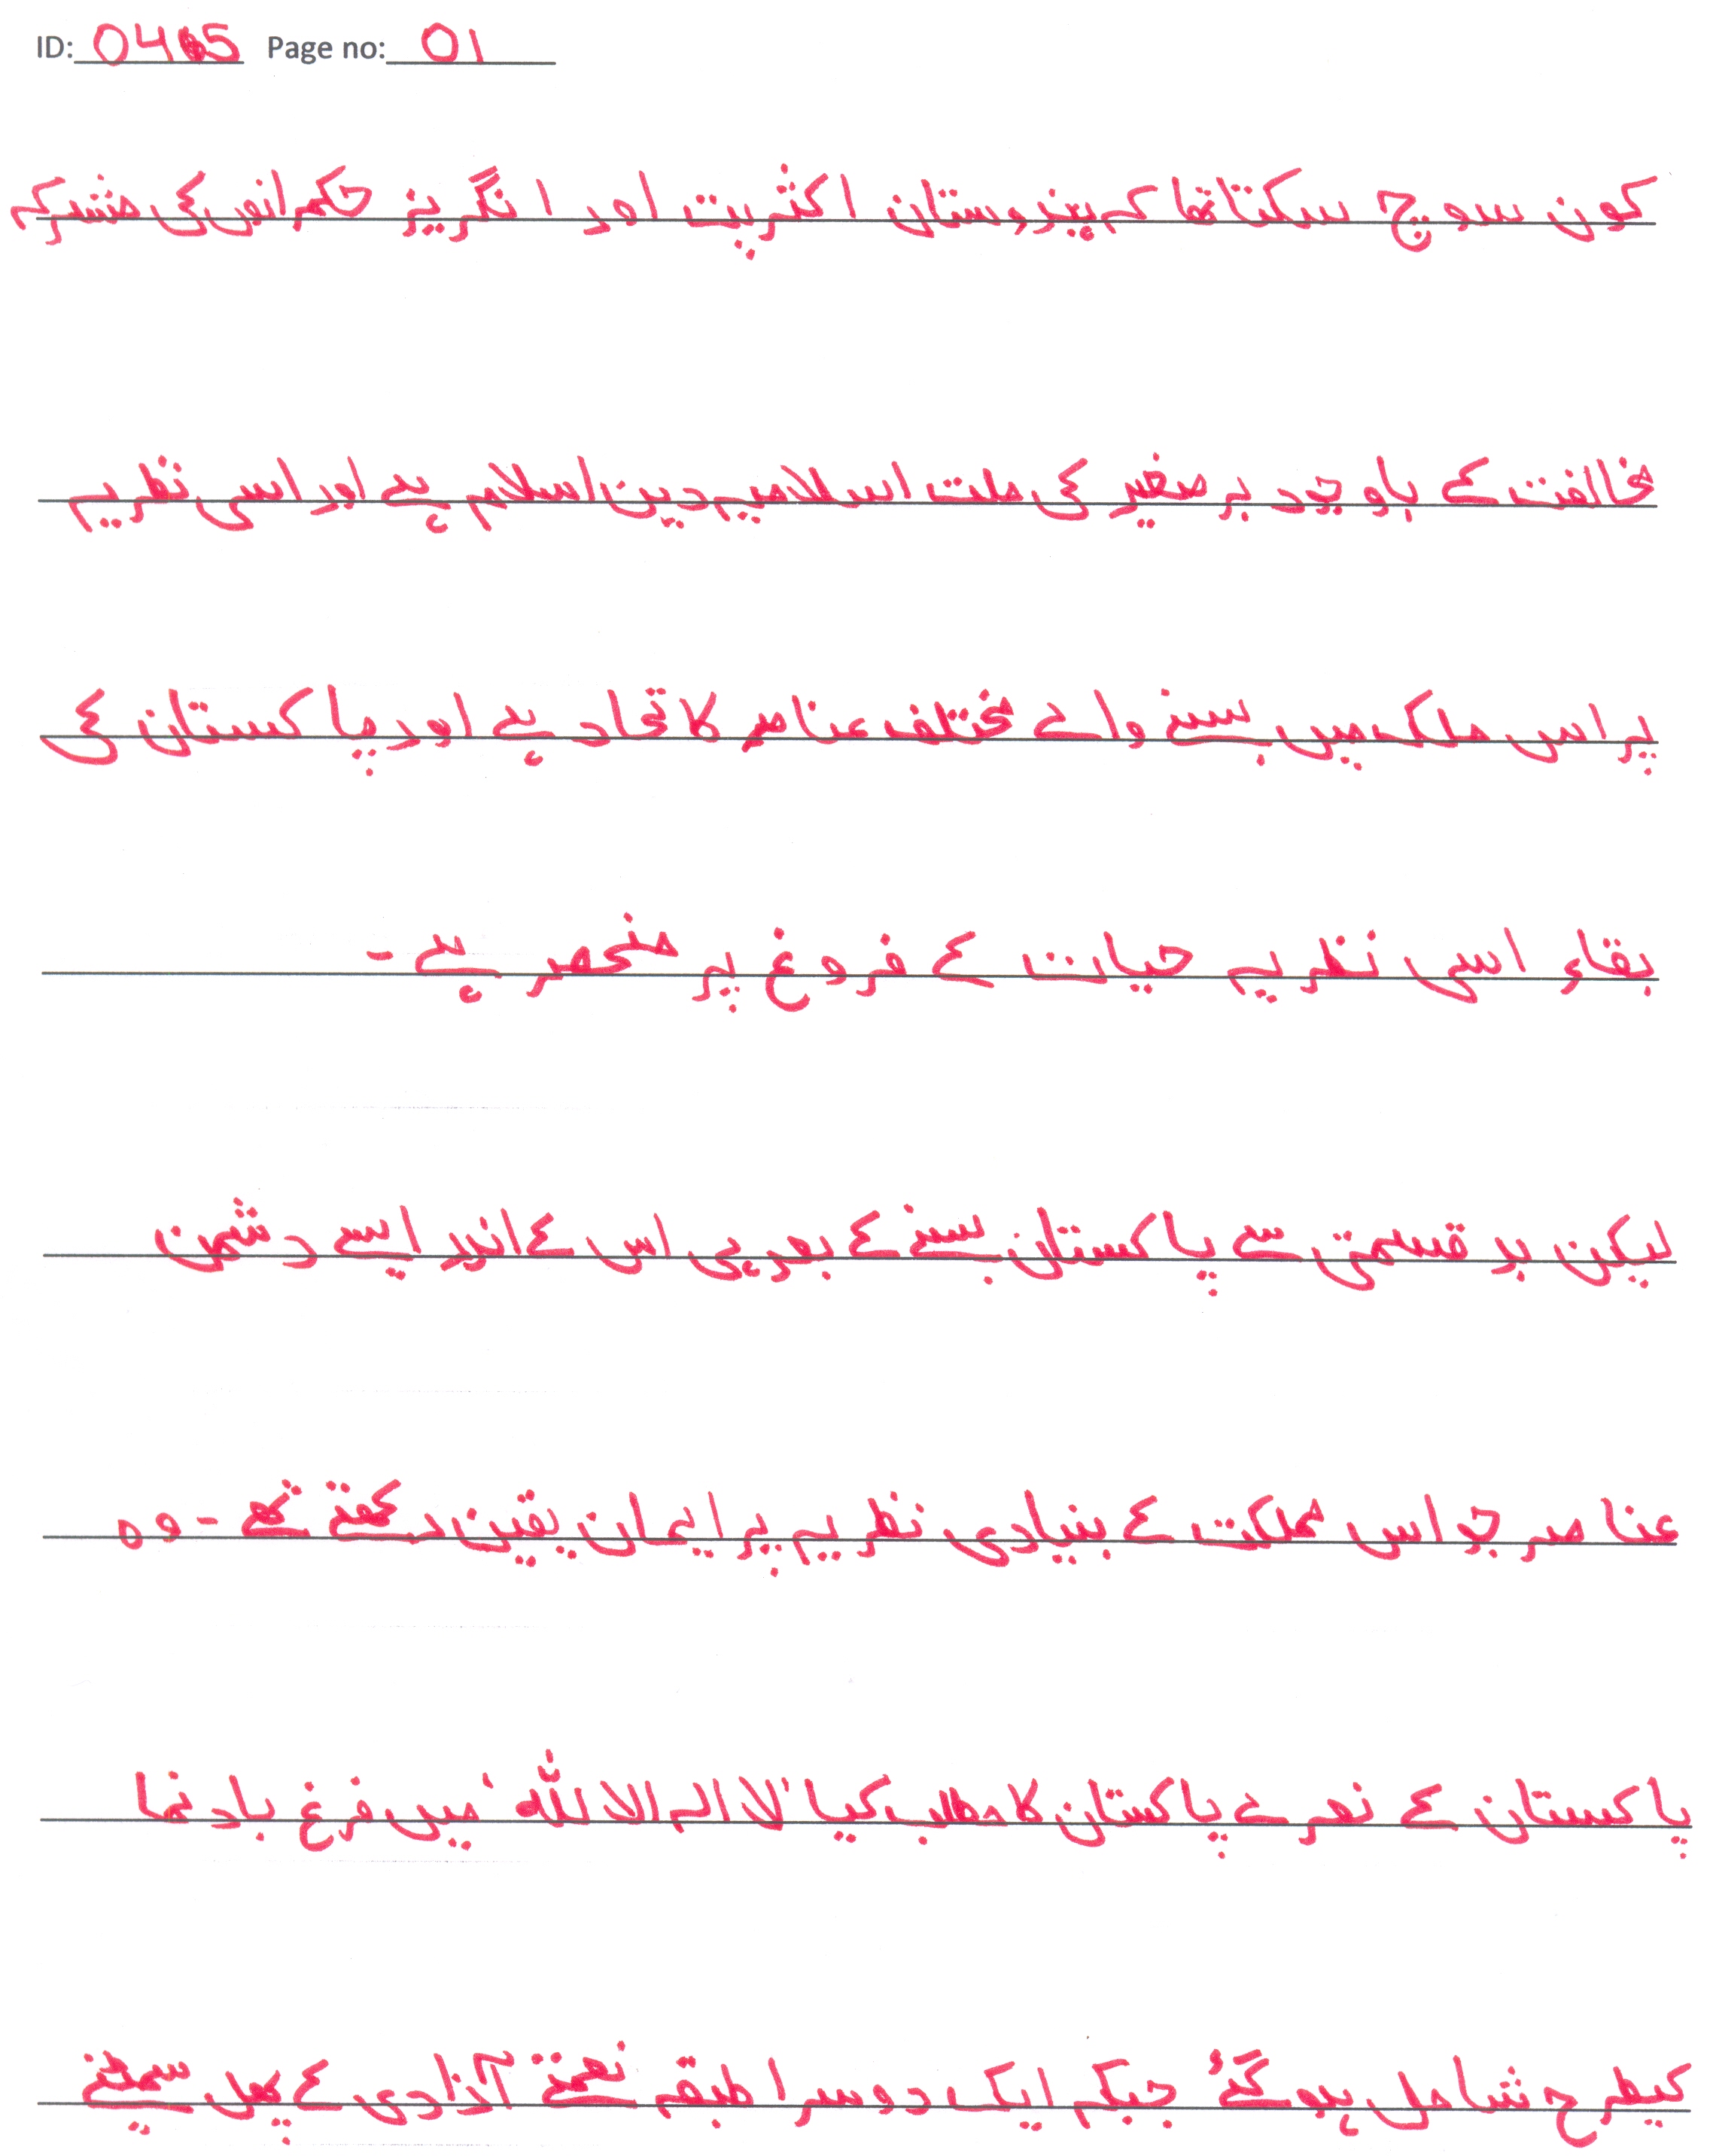 ID: 0405 Page no: 01
کون سوچ سکتا تھا کہ ہندوستان اکثریت اور انگریز حکمرانوں کی مشترکہ
مخالفت کے باوجود برصغیر کی ملت اسلامیہ دین اسلام ہے اور اسی نظریہ
پر اس ملک میں بسنے والے مختلف عناصر کا اتحاد ہے اور پاکستان کی
بقاء اسی نظریہ حیات کے فروغ پر منحصر ہے -
لیکن بد قسمتی سے پاکستان بسنے کے بعد ہی اس کے اندر ایسے دشمن
عناصر جو اس مملکت کے بنیادی نظریہ پر ایمان یقین رکھتے تھے - وہ
پاکستان کے نعرے پاکستان کا مطلب کیا 'لا الہ الا للہ' میں فرغ بادنما
کیطرح شامل ہو گئے جبکہ ایک دوسرا طبقہ نعمتے آزادی کے پھل سمیٹنے